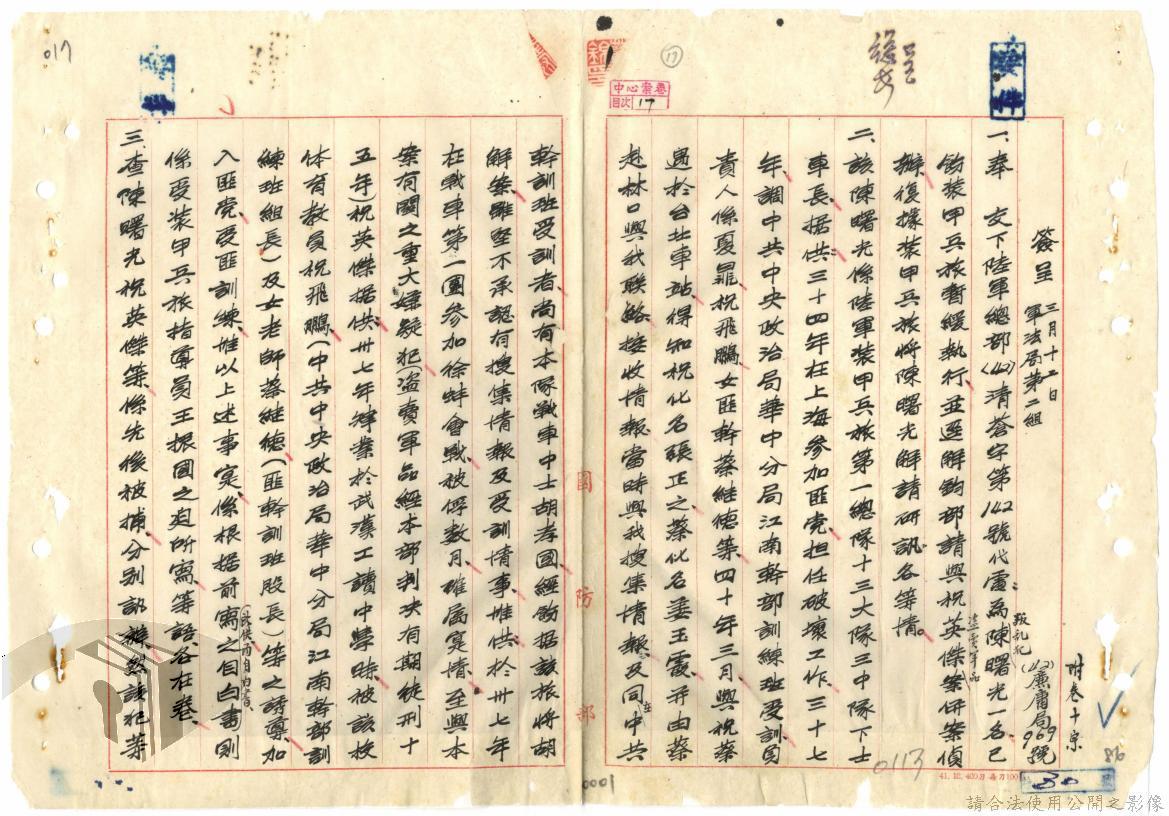 簽呈 三月十二日
軍法局第二組
附卷十宗
(42)廉庸局969號
一、奉 交下陸軍總部(42)清蒼字第142號代電為陳曙光一名已
叛亂犯
鈞裝甲兵旅暫緩執行並逕解鈞部請與祝英傑案併案偵
盜賣軍品
辦復據裝甲兵旅將陳曙光解請研訊各等情。
二、該陳曙光係陸軍裝甲兵旅第一總隊十三大隊三中隊下士
車長據供:三十四年在上海參加匪党担任破壞工作三十七
年調中共中央政治局華中分局江南幹部訓練班受訓負
責人係夏飛、祝飛鵬女匪幹蔡継德等四十年三月與祝蔡
遇於台北車站得知祝化名張正之蔡化名姜玉霞并由蔡
赴林口與我联絡接收情報當時與我搜集情報及同在中共
幹訓班受訓者尚有本隊戰車中士胡孝國經鈞据該旅將胡
解案雖堅不承認有搜集情報及受訓情事惟供於卅七年
在戰車第一團參加徐蚌會戰被俘數月確属寔情至與本
案有関之重大嫌疑犯(盗賣軍品經本部判决有期徒刑十
五年)祝英傑据供卅七年肄業於武漢工讀中學時被該校
体育教員祝飛鵬(中共中央政治局華中分局江南幹部訓
練班組長)及女老師蔡継德(匪幹訓班股長)等之誘導加
入匪党受匪訓練惟以上述事寔係根据前寫之自白書則
係受裝甲兵旅指導員王振國之迫所寫等語各在卷
三、查陳曙光祝英傑等係先後被捕分別訊辦然該犯等
國防部
中心案卷
目次 17
⑰
017
0113
0001
86
30
41.12.400刀每刀100
請合法使用公開之影像